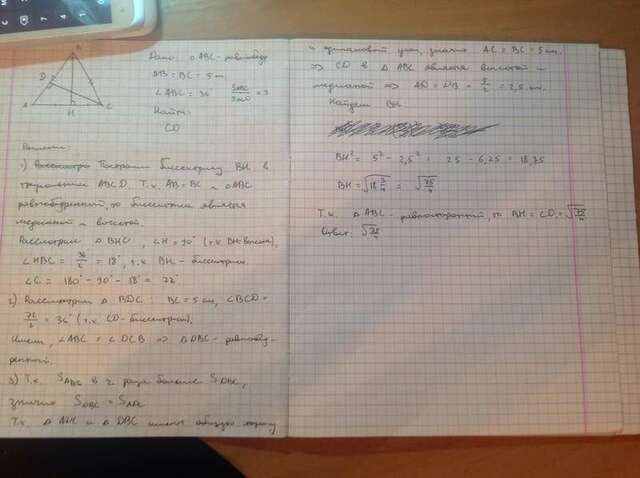 B
D
A
H
C
Дано: △ABC - равнобедр
AB = BC = 5 см
∠ABC = 36°
Найти:
CD
Решение:
1) Построим биссектрису BH в
треугольнике ABCD. Т.к. AB = BC и △ABC
равнобедренный, то биссектриса является
медианой и высотой.
Рассмотрим △BHC, ∠H = 90° (т.к. BH-высота),
∠HBC = 36/2 = 18°, т.к. BH - биссектриса.
∠C = 180° - 90° - 18° = 72°
2) Рассмотрим △ BDC: BC = 5 см, ∠BCD =
72/2 = 36° (т.к. CD - биссектриса).
Имеем, ∠ABC = ∠DCB ⇒ △DBC - равнобед-
ренный.
3) Т.к. S ABC в 2 раза больше S DBC,
значит S DBC = S ADC
Т.к. △ ADC и △ DBC имеют общую
и одинаковой угол, значит AC = BC = 5 см.
⇒ CD в △ ABC является высотой и
медианой ⇒ AD = DB = 5/2 = 2,5 см.
Найдем BH.
BH² = 5² - 2,5² = 25 - 6,25 = 18,75
BH = √18 3/4 = √75/4
Т.к. △ ABC - равносторонний, то BH = CD = √75/4
Ответ: √75/4